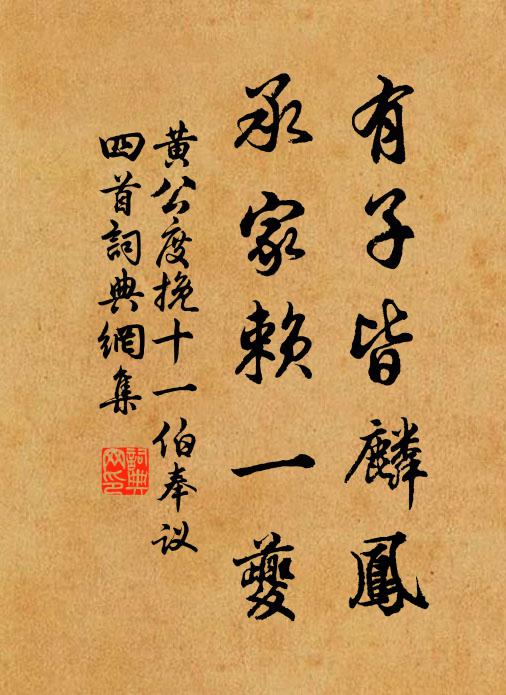 有子皆麟鳳
承家賴一夔
黄公度挽十一伯奉议
四首詞典網集
詞典網印